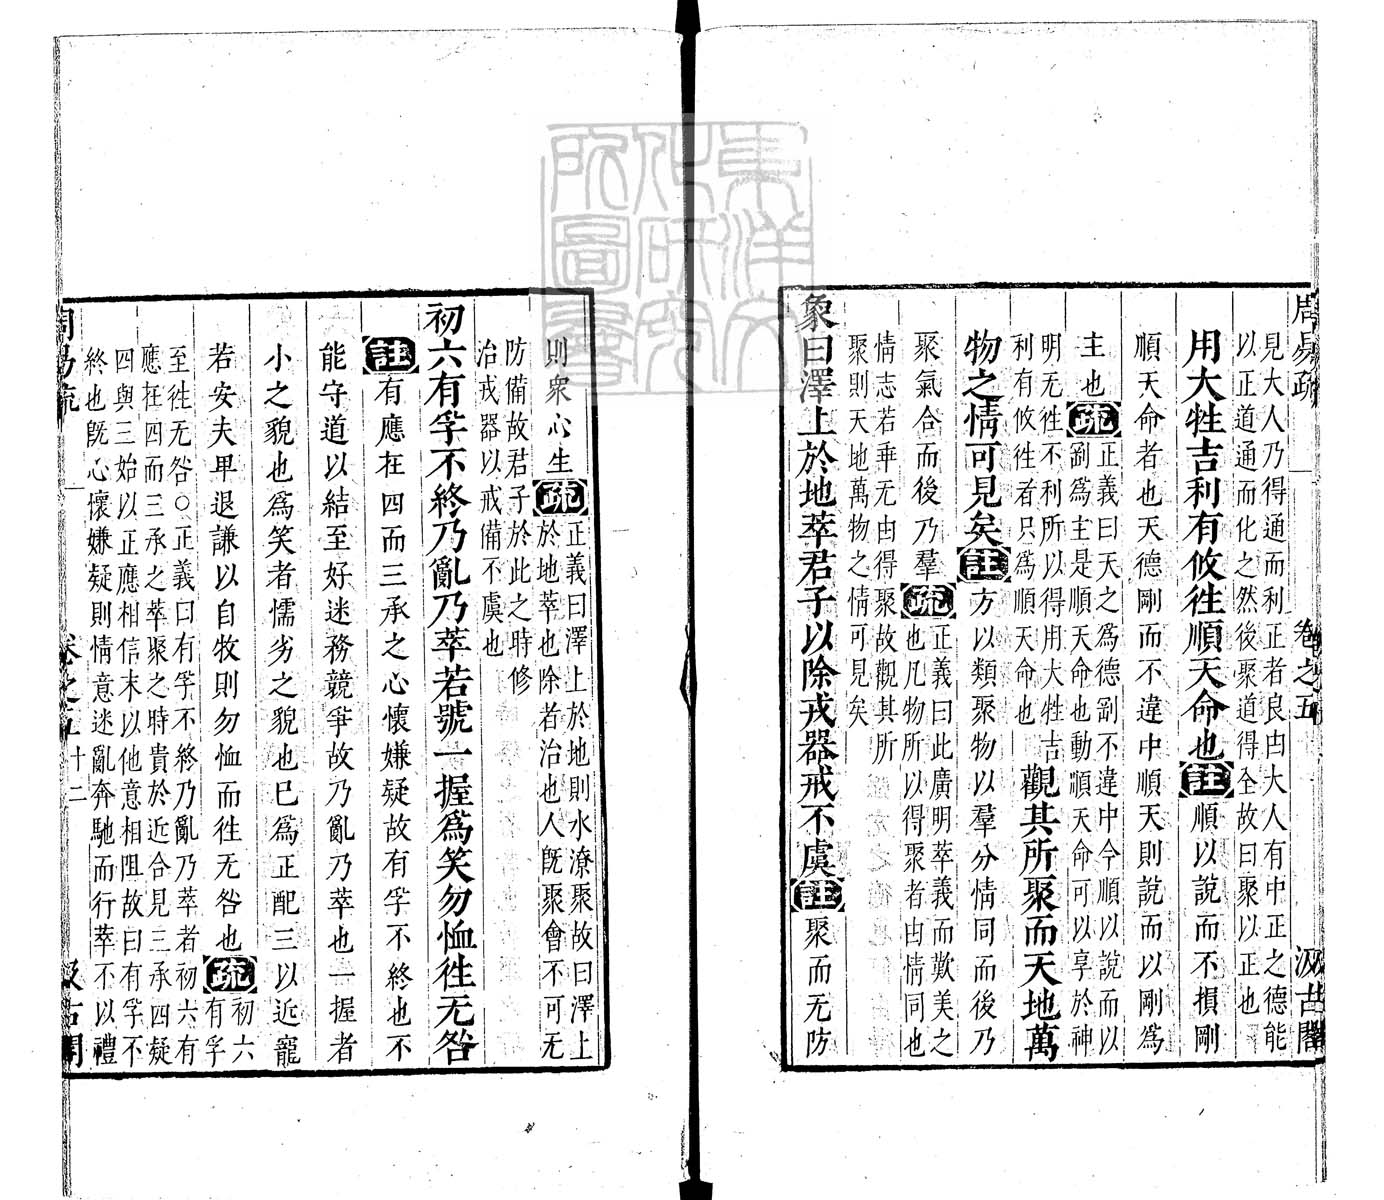 周易疏 卷之五 汲古閣
見大人乃得通而利正者良由大人有中正之德能
以正道通而化之然後聚道得全故曰聚以正也
用大牲吉利有攸往順天命也註順以說而不損剛
順天命者也天德剛而不違中順天則說而以剛爲
主也疏正義曰天之爲德剛不違中今順以說而以
剛爲主是順天命也動順天命可以享於神
明无往不利所以得用大牲吉
利有攸往者只爲順天命也
觀其所聚而天地萬
物之情可見矣註方以類聚物以羣分情同而後乃
聚氣合而後乃羣疏正義曰此廣明萃義而歎美之
也凡物所以得聚者由情同也
情志若乖无由得聚故觀其所
聚則天地萬物之情可見矣
象曰澤上於地萃君子以除戎器戒不虞註聚而无防
則衆心生疏正義曰澤上於地則水潦聚故曰澤上
於地萃也除者治也人旣聚會不可无
防備故君子於此之時修
治戎器以戒備不虞也
初六有孚不終乃亂乃萃若號一握爲笑勿恤往无咎
註有應在四而三承之心懷嫌疑故有孚不終也不
能守道以結至好迷務競爭故乃亂乃萃也一握者
小之貌也爲笑者懦劣之貌也已爲正配三以近寵
若安夫卑退謙以自牧則勿恤而往无咎也疏初六
有孚
至往无咎○正義曰有孚不終乃亂乃萃者初六有
應在四而三承之萃聚之時貴於近合見三承四疑
四與三始以正應相信末以他意相阻故曰有孚不
終也旣心懷嫌疑則情意迷亂奔馳而行萃不以禮
周易疏 卷之五 十二 汲古閣
東洋文化研究所圖書